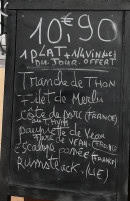 10€,90
1 PLAT + 1/4 VIN
DU JOUR. OFFERT
Tranche de THON
Filet de Merlu
côte de porc (FRANCE)
au THYM
paupiette de Veau
Escalope panée (FRANCE)
Rumsteack. (UE)